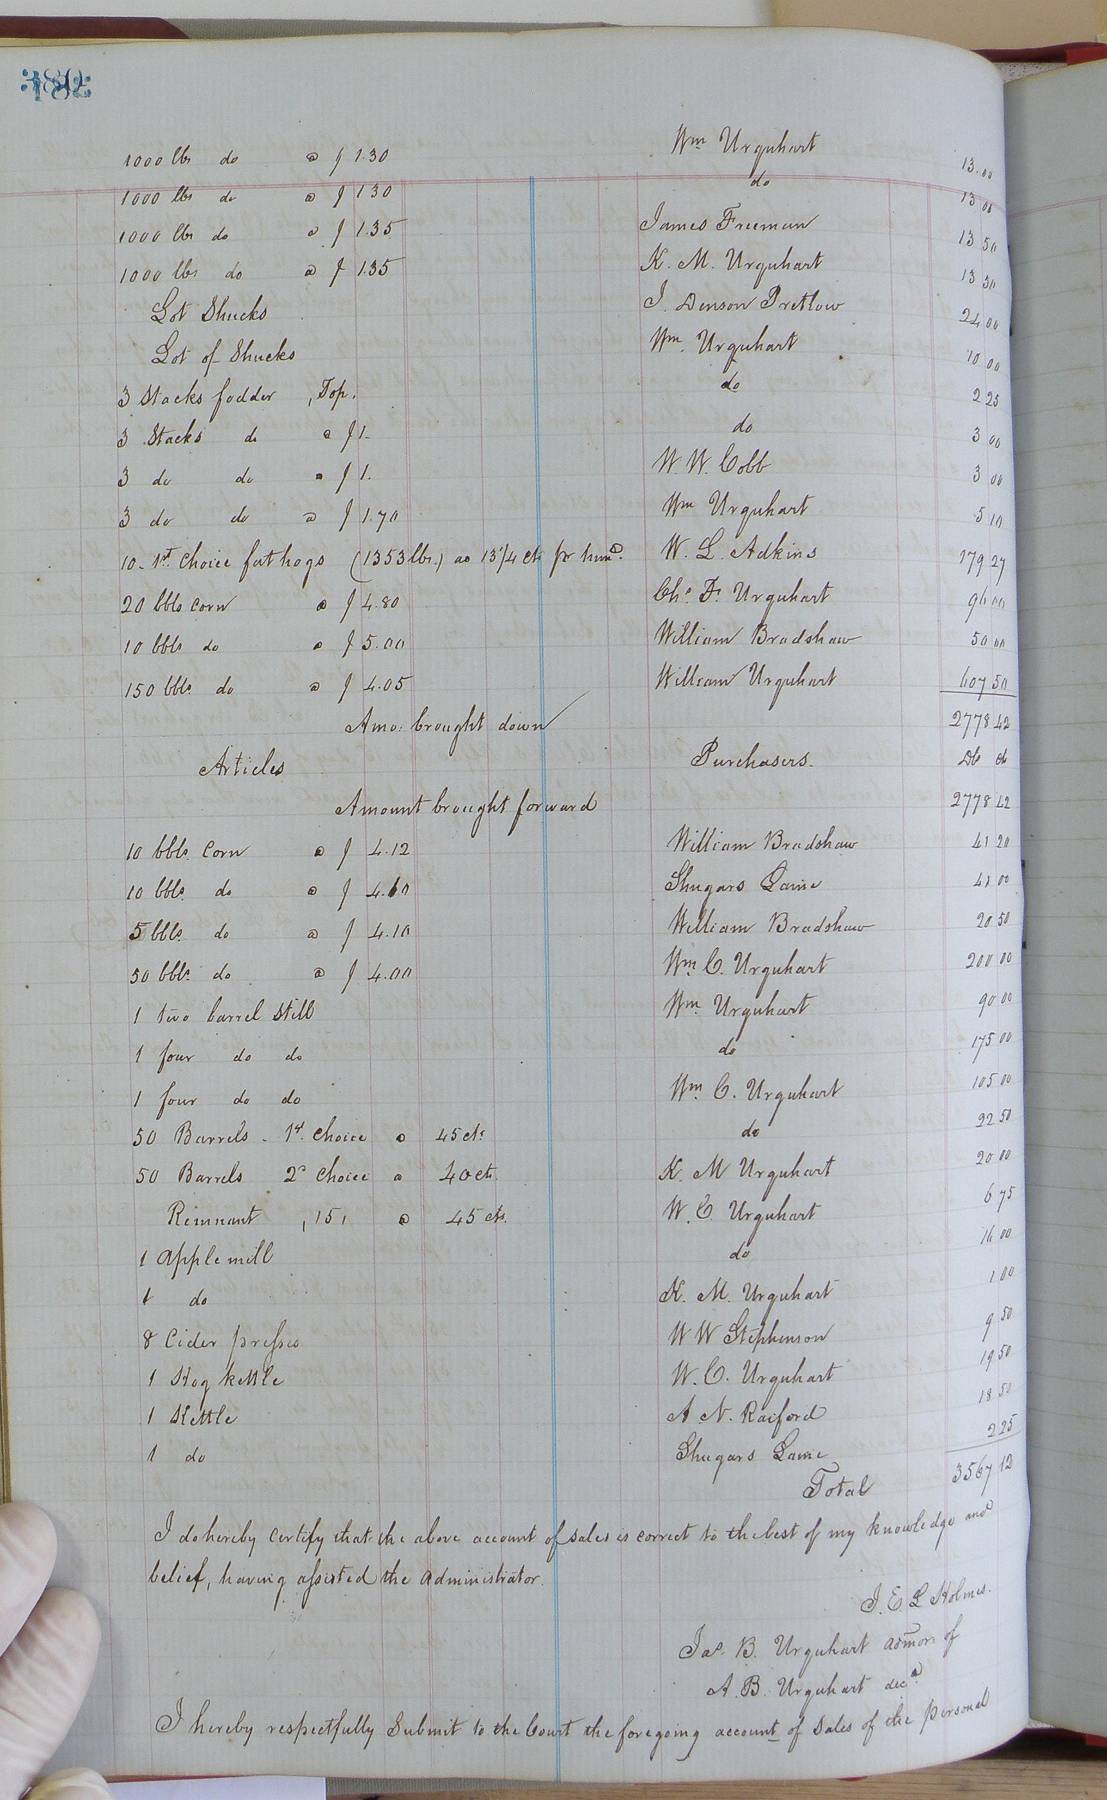 382
1000 lbs do @ $ 1.30 Wm Urquhart 13.00
1000 lbs do @ $ 1.30 do 13 00
1000 lbs do @ $ 1.35 James Freeman 13 50
1000 lbs do @ $ 1.35 K. M. Urquhart 13 50
Lot Shucks J. Denson Pretlow 24 00
Lot of Shucks Wm. Urquhart 10 00
3 Stacks fodder , Top. do 2 25
3 Stacks do @ $ 1. do 3 00
3 do do @ $ 1. W W. Cobb 3 00
3 do do @ $ 1.70 Wm Urquhart 5 10
10 - 1st choice fat hogs (1353 lbs.) as 13 1/4 cts pr hund. W. L. Adkins 179 27
20 bbls corn @ $ 4.80 Chs. F. Urquhart 96 00
10 bbls do @ $ 5.00 William Bradshaw 50 00
150 bbls. do @ $ 4.05 William Urquhart 607 50
Amo: brought down 2778 42
Articles Purchasers. Dls cts
Amount brought forward 2778 42
10 bbls. Corn @ $ 4.12 William Bradshaw 41 20
10 bbls. do @ $ 4.10 Shugars Laine 41 00
5 bbls. do @ $ 4.10 William Bradshaw 20 50
50 bbls. do @ $ 4.00 Wm. C. Urquhart 200 00
1 two barrel still Wm. Urquhart 90 00
1 four do do do 175 00
1 four do do Wm. C. Urquhart 105 00
50 Barrels - 1st. choice @ 45 cts do 22 50
50 Barrels 2d choice @ 40 cts. K. M Urquhart 20 00
Remnant , 15, @ 45 cts. W. C. Urquhart 6 75
1 Apple mill do 16 00
1 do K. M. Urquhart 1 00
8 Cider presses W W Stephenson 9 50
1 Hog kettle W. C. Urquhart 19 50
1 Kettle A N. Raiford 18 50
1 do Shugars Laine 2 25
Total 3567 12
I do hereby certify that the above account of sales is correct to the best of my knowledge and
belief, having assisted the Administrator.
J. E. L Holmes.
Jas. B. Urquhart admor. of
A. B. Urquhart decd.
I hereby respectfully Submit to the Court the foregoing account of Sales of the personal